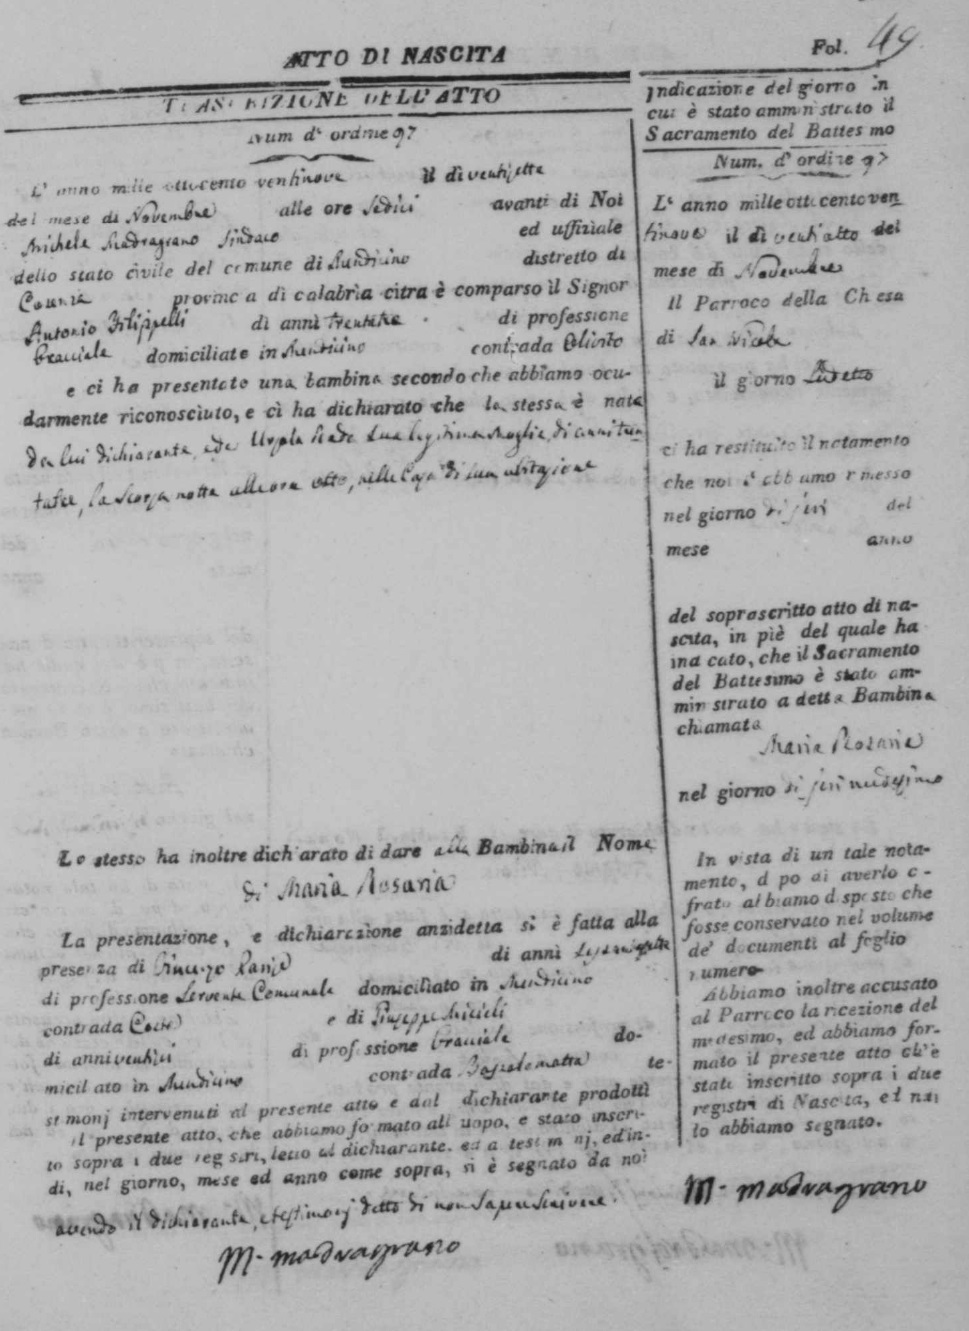 Fol. 49.
ATTO DI NASCITA
TRASCRIZIONE DELL'ATTO
Num d' ordine 97
L' anno mille ottocento ventinove il dì ventisette
del mese di Novembre alle ore sedici avanti di Noi
Michele Madragrano Sindaco ed uffiziale
dello stato civile del comune di Mendicino distretto di
Cosenza provincia di calabria citra è comparso il Signor
Antonio Filippelli di anni trentatre di professione
Bracciale domiciliate in Mendicino contrada
e ci ha presentato una bambina secondo che abbiamo ocu-
darmente riconosciuto, e ci ha dichiarato che la stessa è nata
da lui dichiarante, e da Ursola sua legittima moglie, di anni tren
tatre, la scorsa notte alle ore otto, nella Casa di sua abitazione
Lo stesso ha inoltre dichiarato di dare alla Bambina il Nome
di Maria Rosaria
La presentazione, e dichiarazione anzidetta si è fatta alla
presenza di Vincenzo di anni
di professione Servente Comunale domiciliato in Mendicino
contrada e di Giuseppe
di anni di professione Bracciale do-
miciliato in Mendicino contrada te-
stimonj intervenuti al presente atto e dal dichiarante prodotti
il presente atto, che abbiamo formato all uopo, e stato inscri-
to sopra i due registri, letto al dichiarante, ed a testimonj, ed in-
di, nel giorno, mese ed anno come sopra, si è segnato da noi
avendo il dichiarante, e testimonj detto di non saper scrivere.
M. Madragrano
Indicazione del giorno in
cui è stato amministrato il
Sacramento del Battesimo
Num. d' ordine 97
L' anno mille ottocento ven
tinove il dì vent'otto del
mese di Novembre
Il Parroco della Chiesa
di San Nicola
il giorno suddetto
ci ha restituito il notamento
che noi l' abbiamo rimesso
nel giorno di jeri del
mese anno
del soprascritto atto di na-
scita, in piè del quale ha
indicato, che il Sacramento
del Battesimo è stato am-
ministrato a detta Bambina
chiamata
Maria Rosaria
nel giorno di jeri medesimo
In vista di un tale nota-
mento, dopo di averlo ci-
frato abbiamo disposto che
fosse conservato nel volume
de' documenti al foglio
numero
Abbiamo inoltre accusato
al Parroco la ricezione del
medesimo, ed abbiamo for-
mato il presente atto ch'è
stato inscritto sopra i due
registri di Nascita, ed noi
lo abbiamo segnato.
M. Madragrano